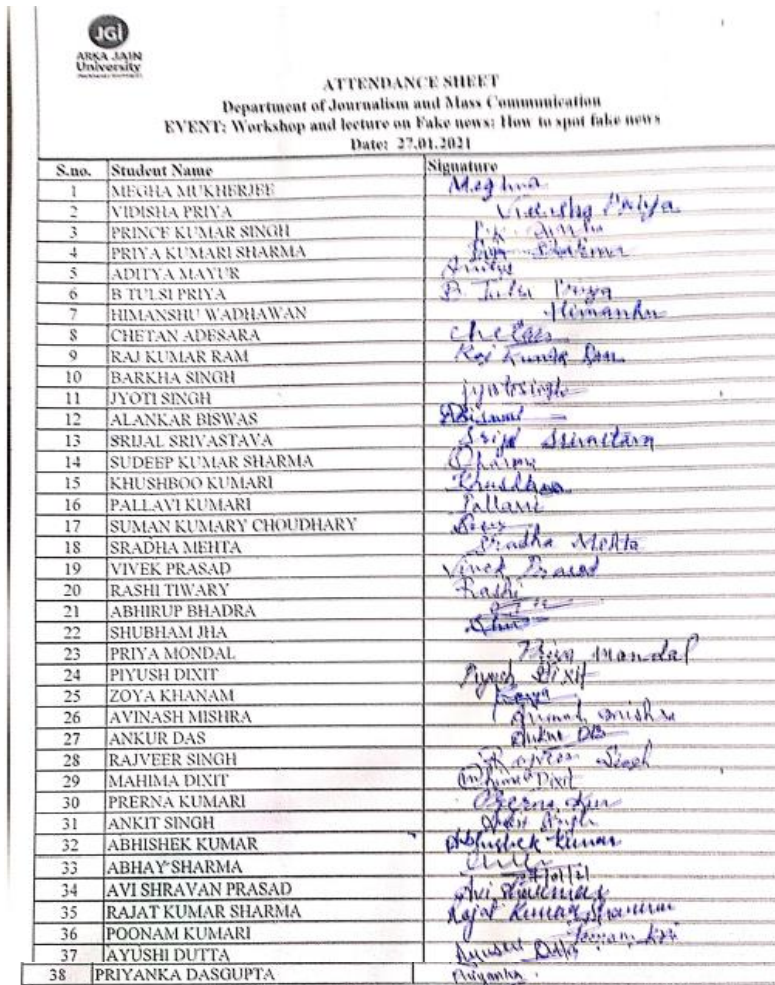 JGi
ARKA JAIN
University
ATTENDANCE SHEET
Department of Journalism and Mass Communication
EVENT: Workshop and lecture on Fake news: How to spot fake news
Date: 27.01.2021
S.no. Student Name Signature
1 MEGHA MUKHERJEE Megha
2 VIDISHA PRIYA Vidisha Priya
3 PRINCE KUMAR SINGH
4 PRIYA KUMARI SHARMA Priya Sharma
5 ADITYA MAYUR Aditya
6 B TULSI PRIYA B. Tulsi Priya
7 HIMANSHU WADHAWAN Himanshu
8 CHETAN ADESARA Chetan
9 RAJ KUMAR RAM Raj Kumar Ram
10 BARKHA SINGH
11 JYOTI SINGH jyotisingh
12 ALANKAR BISWAS
13 SRIJAL SRIVASTAVA Srijal Srivastava
14 SUDEEP KUMAR SHARMA Sharma
15 KHUSHBOO KUMARI Khushboo
16 PALLAVI KUMARI Pallavi
17 SUMAN KUMARY CHOUDHARY
18 SRADHA MEHTA Sradha Mehta
19 VIVEK PRASAD Vivek Prasad
20 RASHI TIWARY Rashi
21 ABHIRUP BHADRA
22 SHUBHAM JHA
23 PRIYA MONDAL Priya mondal
24 PIYUSH DIXIT Piyush Dixit
25 ZOYA KHANAM Zoya
26 AVINASH MISHRA Avinash mishra
27 ANKUR DAS Ankur Das
28 RAJVEER SINGH Rajveer Singh
29 MAHIMA DIXIT Mahima Dixit
30 PRERNA KUMARI Prerna
31 ANKIT SINGH Ankit Singh
32 ABHISHEK KUMAR Abhishek Kumar
33 ABHAY SHARMA
34 AVI SHRAVAN PRASAD
35 RAJAT KUMAR SHARMA Rajat Kumar Sharma
36 POONAM KUMARI Poonam
37 AYUSHI DUTTA Ayushi Dutta
38 PRIYANKA DASGUPTA Priyanka